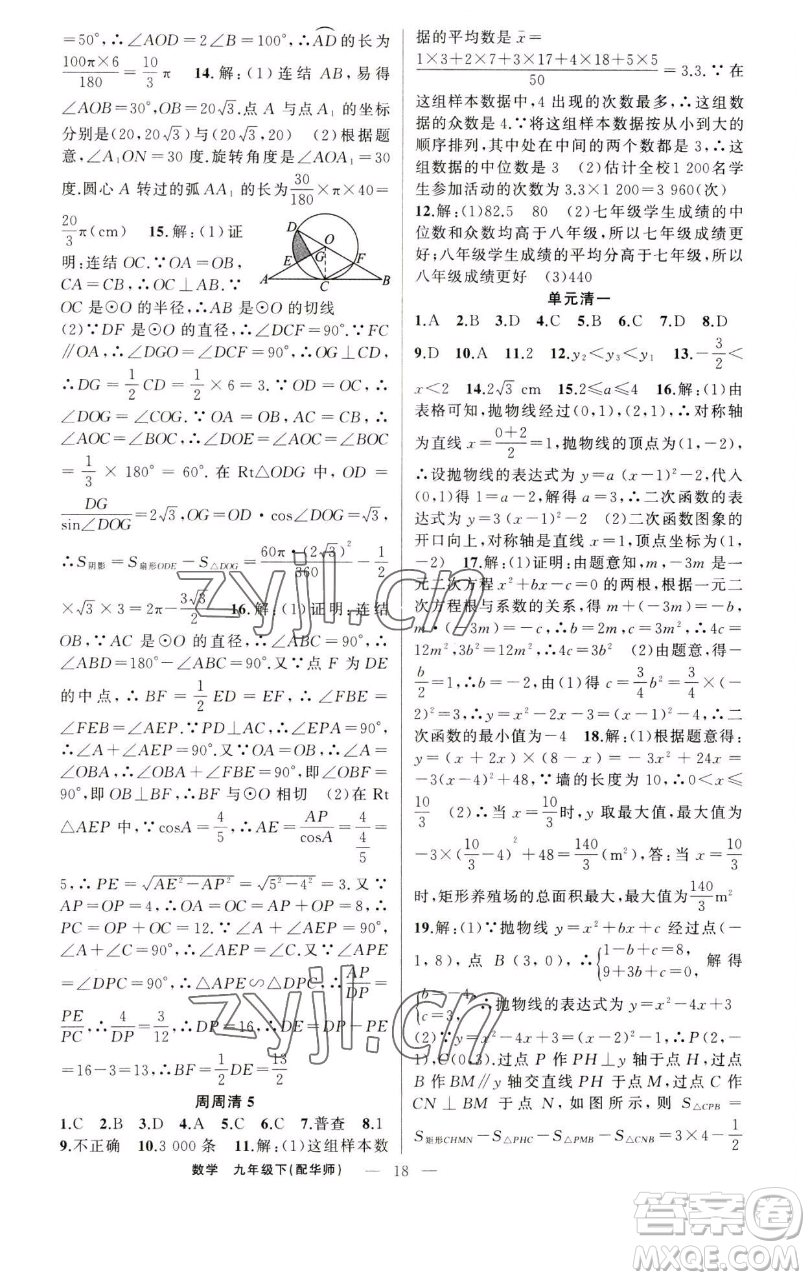 =50°,∴∠AOD=2∠B=100°,∴⌒AD的长为
100π×6/180=10/3π 14.解:(1)连结 AB,易得
∠AOB=30°,OB=20√3.点 A 与点 A₁ 的坐标
分别是(20,20√3)与(20,20) (2)根据题
意,∠A₁ON=30 度.旋转角度是∠AOA₁=30
度.圆心 A 转过的弧 AA₁ 的长为30/180×π×40=
20/3π(cm) 15.解:(1)证
明:连结 OC.∵OA=OB,
CA=CB,∴OC⊥AB.∵
OC 是⊙O 的半径,∴AB 是⊙O 的切线
D
O
E
G
F
A
C
B
(2)∵DF 是⊙O 的直径,∴∠DCF=90°.∵FC
∥OA,∴∠DGO=∠DCF=90°,∴OG⊥CD,
∴DG=1/2CD=1/2×6=3.∴
∠DOG=∠COG.∵OA=OB,AC=CB,∴
∠AOC=∠BOC,∴∠DOE=∠AOC=∠BOC=
1/3×180°=60°.在 Rt△ODG 中,OD=
DG/sin∠DOG=2√3,OG=OD·cos∠DOG=√3,
∴S阴影=S扇形ODE-S△DOG=60π·(2√3)²/360-1/2
×√3×3=2π-3√3/2 16.解:(1)证明:连结
OB,∵AC 是⊙O 的直径,∴∠ABC=90°,∴
∠ABD=180°-∠ABC=90°.又∵点 F 为 DE
的中点,∴BF=1/2ED=EF,∴∠FBE=
∠FEB=∠AEP.∵PD⊥AC,∴∠EPA=90°,
∴∠A+∠AEP=90°.∵OA=OB,∴∠A=
∠OBA,∴∠OBA+∠FBE=90°,即∠OBF=
90°,即 OB⊥BF,∴BF 与⊙O 相切 (2)在 Rt
△AEP 中,∵cosA=4/5,∴AE=AP/cosA=4/(4/5)=
5,∴PE=√(AE²-AP²)=√(5²-4²)=3.又∵
AP=OP=4,∴OA=OC=8,∴
PC=OP+OC=12.∵∠A+∠AEP=90°,
∠A+∠C=90°,∴∠AEP=∠C.又∵∠APE
=∠DPC=90°,∴△APE∽△DPC,∴AP/DP=
PE/PC,∴4/DP=3/12,∴DP=16,∴DE=DP-PE
=16-3=13,∴BF=1/2DE=13/2
周周清 5
1.C 2.B 3.D 4.C 5.C 6.C 7.普查 8.1
9.不正确 10.3 000 条 11.解:(1)这组样本数
据的平均数是 x̄=
(1×3+2×7+3×17+4×18+5×5)/50=3.3.∵在
这组样本数据中,4 出现的次数最多,∴这组数
据的众数是 4.∵将这组样本数据按从小到大的
顺序排列,其中处在中间的两个数都是 3,∴这
组数据的中位数是 3 (2)估计全校 1 200名学
生参加活动的次数为 3.3×1 200=3 960(次)
12.解:(1)82.5 80 (2)七年级学生成绩的中
位数和众数均高于八年级,所以七年级成绩更
好;八年级学生成绩的平均分高于七年级,所以
八年级成绩更好 (3)440
单元清一
1.A 2.B 3.D 4.C 5.B 6.C 7.D 8.D
9.D 10.A 11.2 12.y₂<y₃<y₁ 13.-3/2<
x<2 14.2√3 cm 15.2≤a≤4 16.解:(1)由
表格可知,抛物线经过(0,1),(2,1),∴对称轴
为直线 x=(0+2)/2=1,抛物线的顶点为(1,-2),
∴设抛物线的表达式为 y=a(x-1)²-2,代入
(0,1)得 1=a-2,解得 a=3,∴二次函数的表
达式为 y=3(x-1)²-2 (2)二次函数图象的
开口向上,对称轴为直线 x=1,顶点坐标为(1,
-2) 17.解:(1)证明:由题意知,m,-3m 是一
元二次方程 x²+bx-c=0 的两根,根据一元二
次方程根与系数的关系,得 m+(-3m)=-b,
m·(-3m)=-c,∴b=2m,c=3m²,∴4c=
12m²,3b²=12m²,∴4c=3b² (2)由题意,得-
b/2=1,∴b=-2,由(1)得 c=3/4b²=3/4×(-
2)²=3,∴y=x²-2x-3=(x-1)²-4,∴二
次函数的最小值为-4 18.解:(1)根据题意得:
y=(x+2x)×(8-x)=-3x²+24x=
-3(x-4)²+48,∵墙的长度为 10,∴0<x≤
10/3 (2)∴当 x=10/3时,y 取最大值,最大值为
-3×(10/3-4)²+48=140/3(m²),答:当 x=10/3
时,矩形养殖场的总面积最大,最大值为140/3m²
19.解:(1)∵抛物线 y=x²+bx+c 经过点(-
1,8),点 B(3,0),∴{1-b+c=8,9+3b+c=0,解得
{b=-4,c=3,∴抛物线的表达式为 y=x²-4x+3
(2)∵y=x²-4x+3=(x-2)²-1,∴P(2,-
1),C(0,3).过点 P 作 PH⊥y 轴于点 H,过点
B 作 BM∥y 轴交直线 PH 于点 M,过点 C 作
CN⊥BM 于点 N,如图所示,则 S△CPB=
S矩形CHMN-S△PHC-S△PMB-S△CNB=3×4-1/2
数学 九年级下(配华师) — 18 —
zyjl.cn
zyjl.cn
答案圈
MXQE.COM